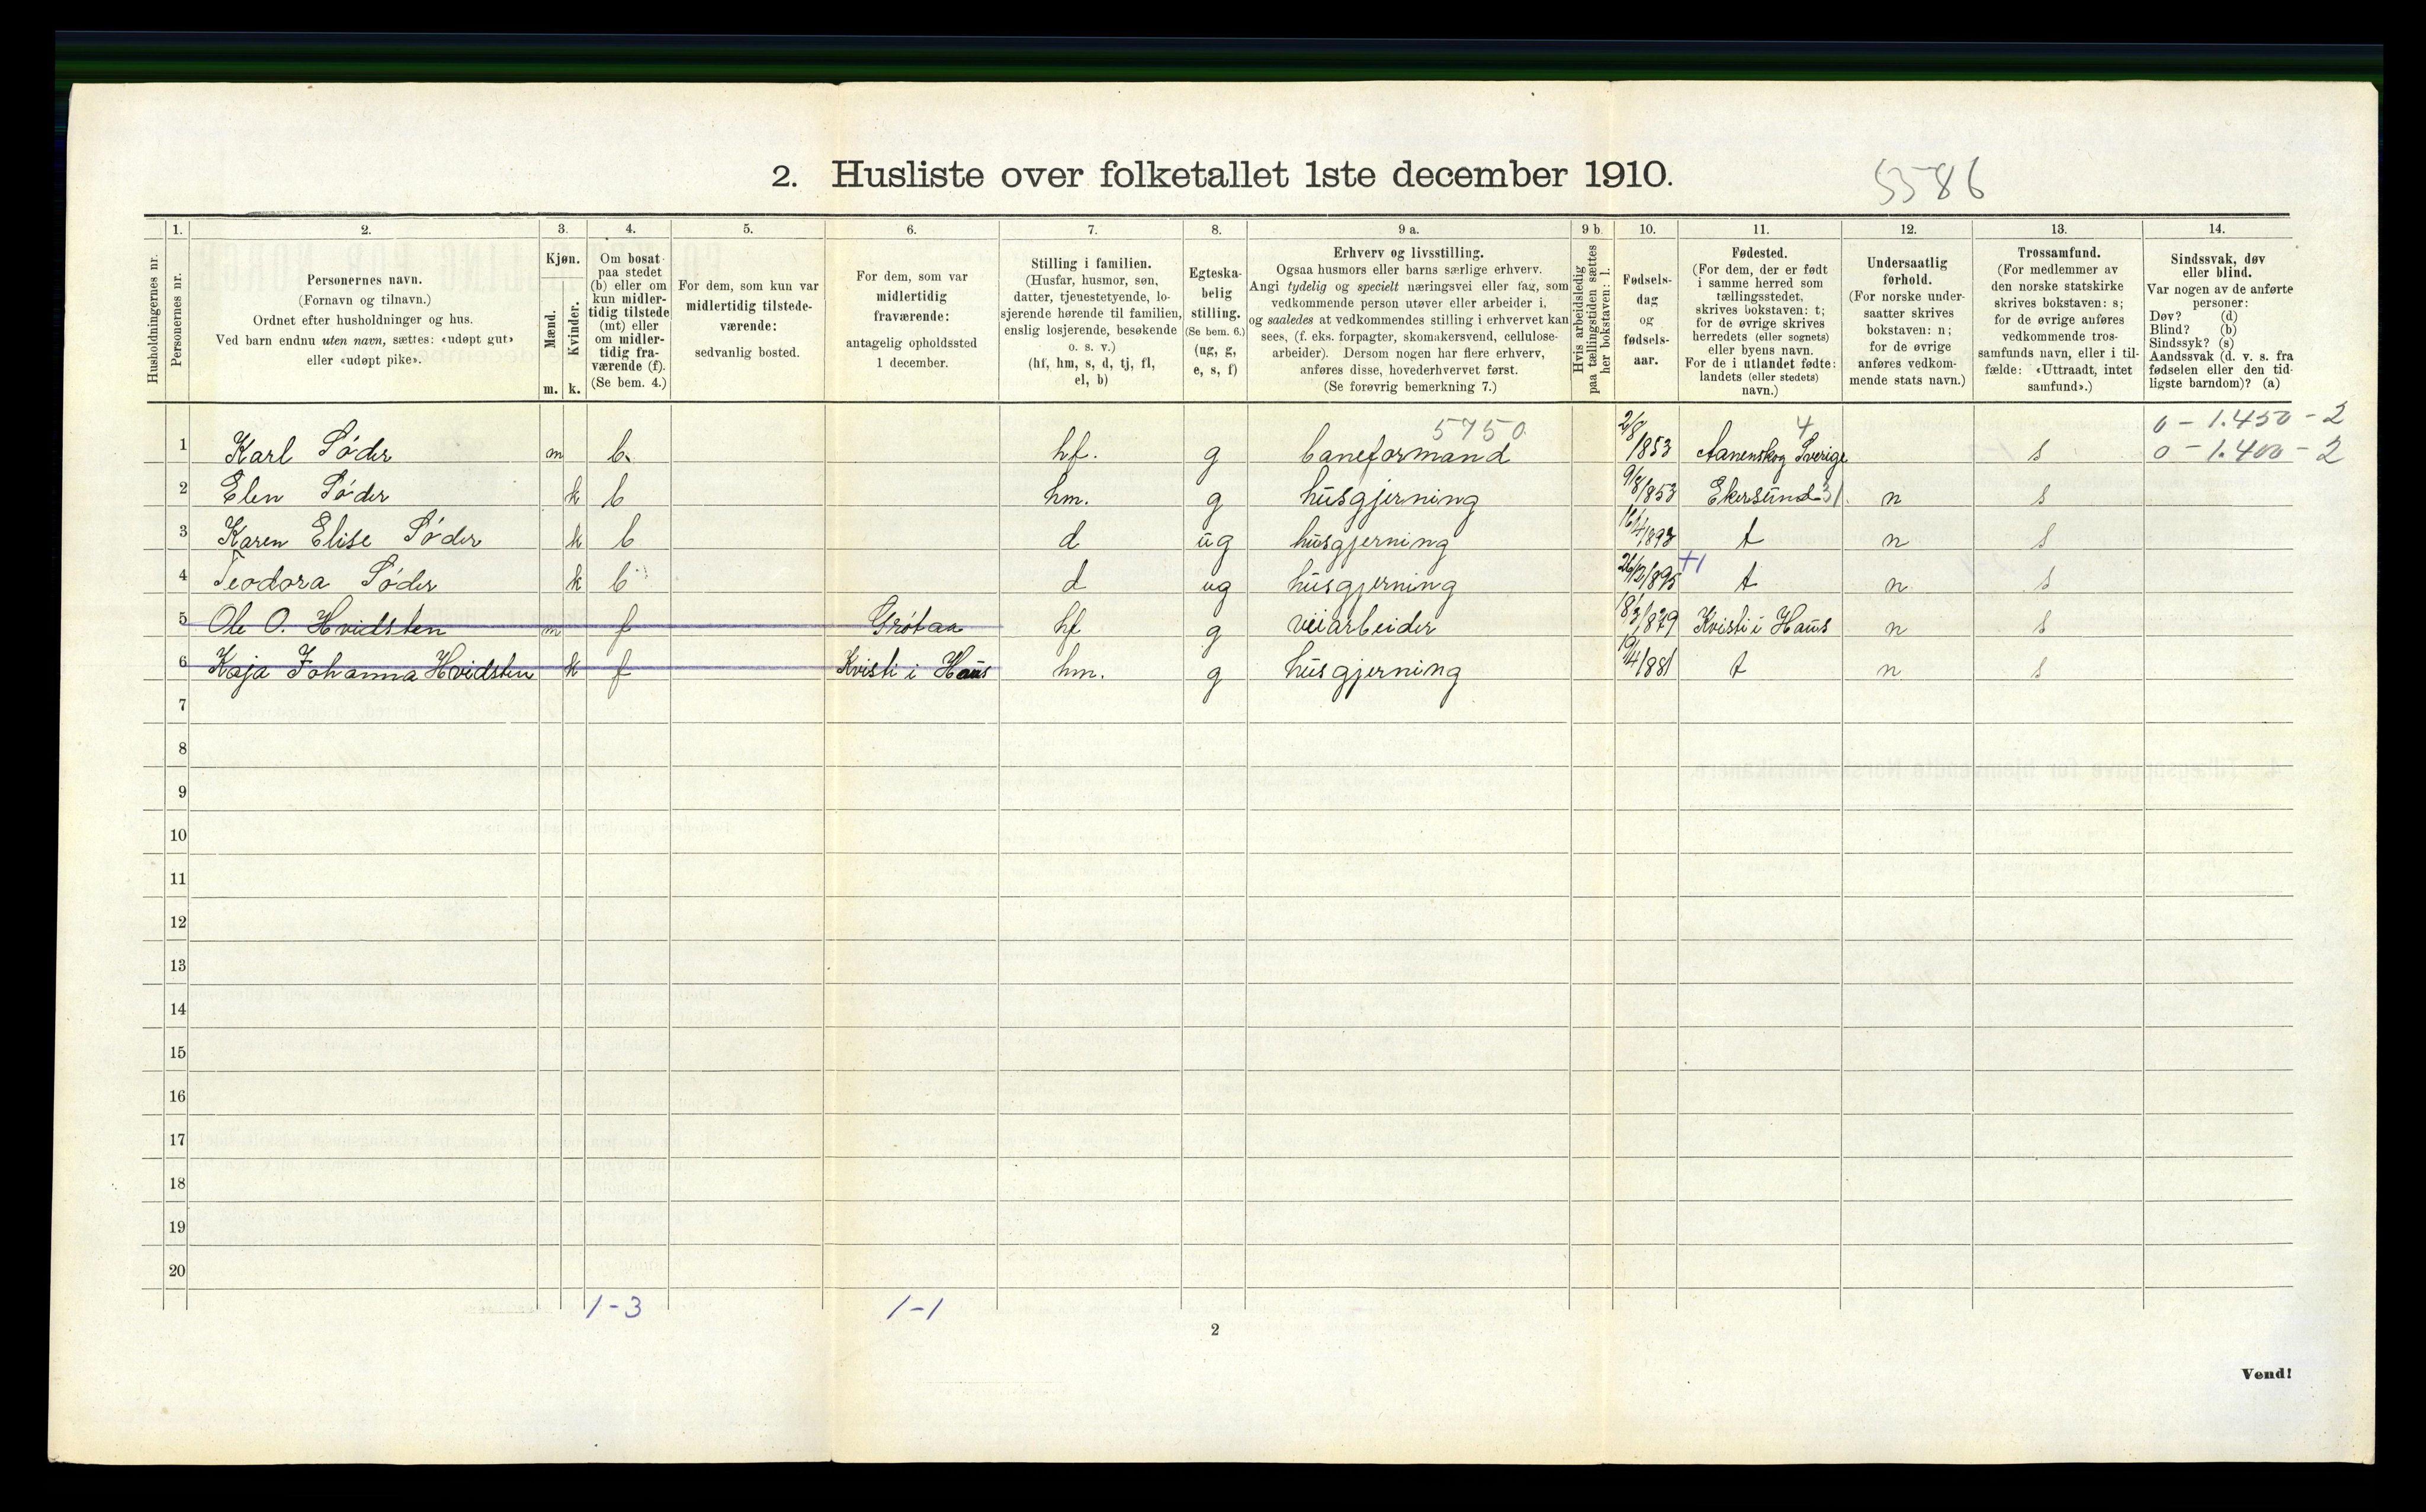 2. Husliste over folketallet 1ste december 1910.
5586
Husholdningernes nr.
1.
Personernes nr.
2.
Personernes navn.
(Fornavn og tilnavn.)
Ordnet efter husholdninger og hus.
Ved barn endnu uten navn, sættes: «udøpt gut»
eller «udøpt pike».
3.
Kjøn.
Mænd.
m.
Kvinder.
k.
4.
Om bosat
paa stedet
(b) eller om
kun midler-
tidig tilstede
(mt) eller
om midler-
tidig fra-
værende (f).
(Se bem. 4.)
5.
For dem, som kun var
midlertidig tilstede-
værende:
sedvanlig bosted.
6.
For dem, som var
midlertidig
fraværende:
antagelig opholdssted
1 december.
7.
Stilling i familien.
(Husfar, husmor, søn,
datter, tjenestetyende, lo-
sjerende hørende til familien,
enslig losjerende, besøkende
o. s. v.)
(hf, hm, s, d, tj, fl,
el, b)
8.
Egteska-
belig
stilling.
(Se bem. 6.)
(ug, g,
e, s, f)
9 a.
Erhverv og livsstilling.
Ogsaa husmors eller barns særlige erhverv.
Angi tydelig og specielt næringsvei eller fag, som
vedkommende person utøver eller arbeider i,
og saaledes at vedkommendes stilling i erhvervet kan
sees, (f. eks. forpagter, skomakersvend, cellulose-
arbeider). Dersom nogen har flere erhverv,
anføres disse, hovederhvervet først.
(Se forøvrig bemerkning 7.)
9 b.
Hvis arbeidsledig
paa tællingstiden sættes
her bokstaven: l.
10.
Fødsels-
dag
og
fødsels-
aar.
11.
Fødested.
(For dem, der er født
i samme herred som
tællingsstedet,
skrives bokstaven: t;
for de øvrige skrives
herredets (eller sognets)
eller byens navn.
For de i utlandet fødte:
landets (eller stedets)
navn.)
12.
Undersaatlig
forhold.
(For norske under-
saatter skrives
bokstaven: n;
for de øvrige
anføres vedkom-
mende stats navn.)
13.
Trossamfund.
(For medlemmer av
den norske statskirke
skrives bokstaven: s;
for de øvrige anføres
vedkommende tros-
samfunds navn, eller i til-
fælde: «Uttraadt, intet
samfund».)
14.
Sindssvak, døv
eller blind.
Var nogen av de anførte
personer:
Døv? (d)
Blind? (b)
Sindssyk? (s)
Aandssvak (d. v. s. fra
fødselen eller den tid-
ligste barndom)? (a)
5750 4 0 - 1.450 - 2
1 Karl Søder m b. hf. g baneformand 2/8 1853 Aanenskog Sverige s 0 - 1.400 - 2
2 Elen Søder k b hm. g husgjerning 9/8/853 Ekersund 31 n s
3 Karen Elise Søder k b d ug husgjerning 16/4/1893 t n s
4 Teodora Søder k b d ug husgjerning 26/2/1895 +1 t n s
5 Ole O. Hvidsten m f Grøtaa hf g veiarbeider 18/3/879 Kvisti i Haus n s
6 Kaja Johanna Hvidsten k f Kvisti i Haus hm. g husgjerning 19/4/881 t n s
7
8
9
10
11
12
13
14
15
16
17
18
19
20
1-3 1-1
2
Vend!